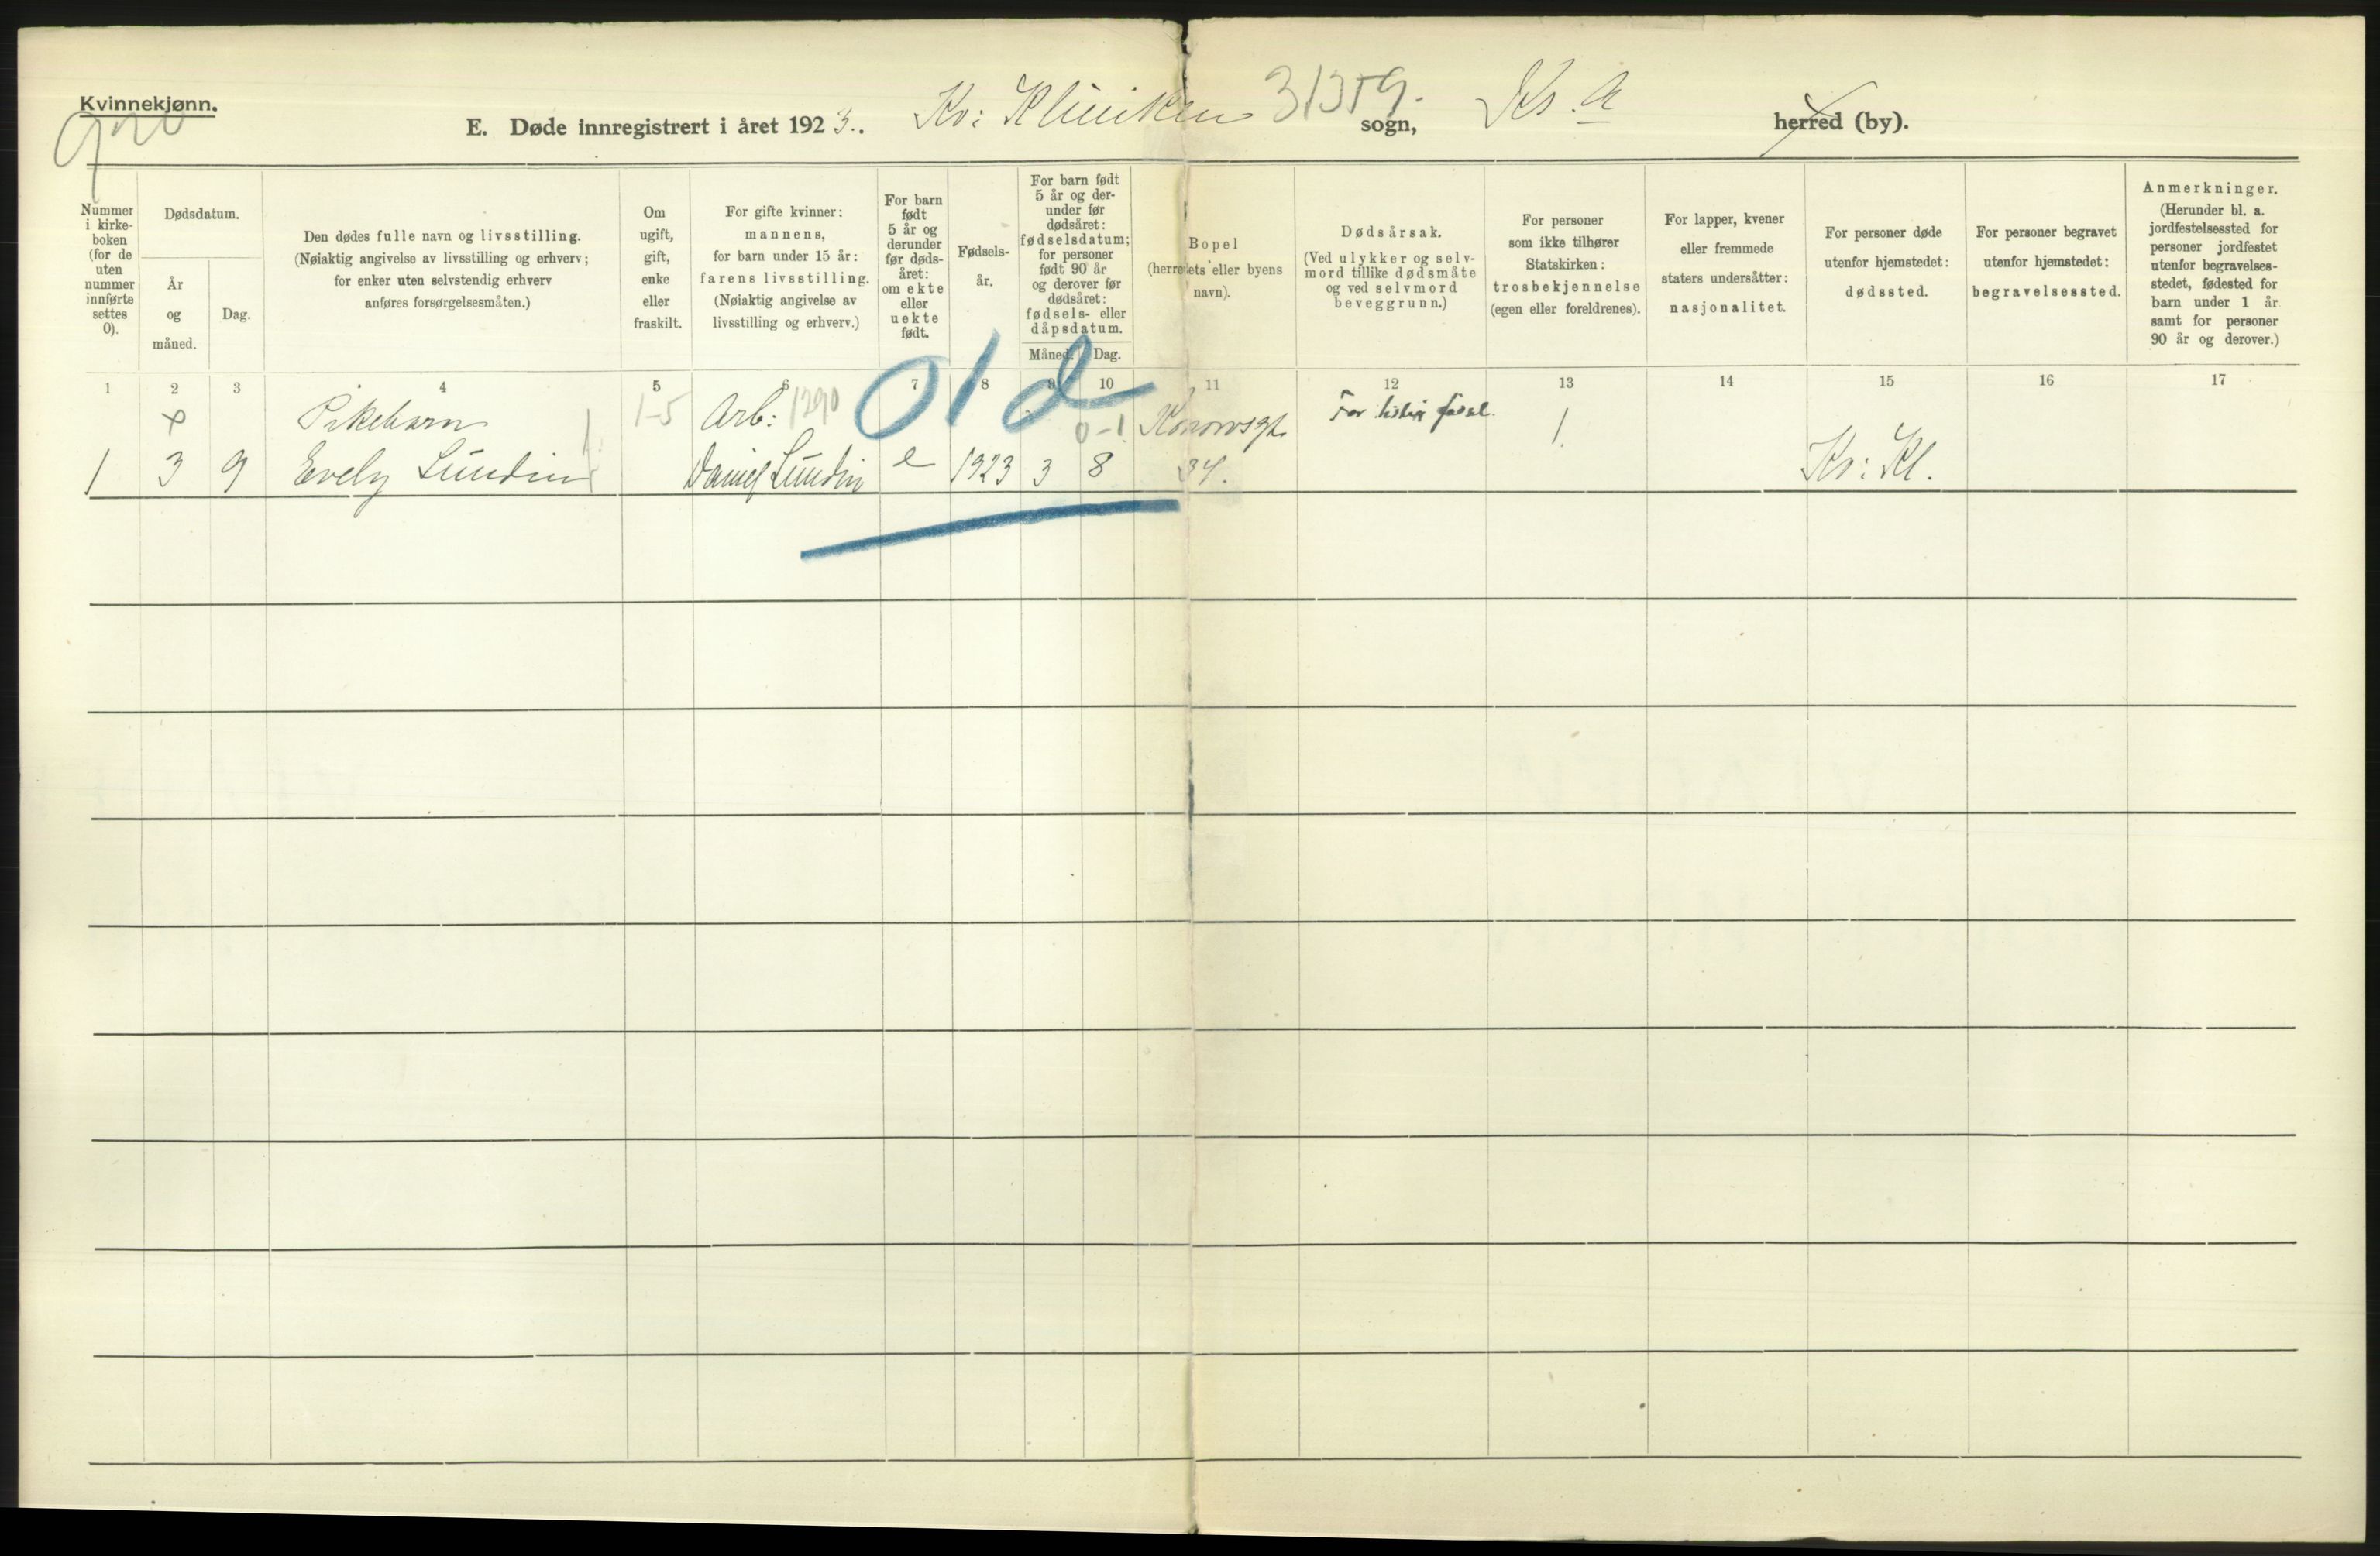 Kvinnekjønn.
E. Døde innregistrert i året 1923. Kv: Kliniken 31359. sogn, Kr. a herred (by).
Nummer i kirke-
boken
(for de
uten
nummer
innførte
settes
0).
Dødsdatum.
År
og
måned.
Dag.
Den dødes fulle navn og livsstilling.
(Nøiaktig angivelse av livsstilling og erhverv;
for enker uten selvstendig erhverv
anføres forsørgelsesmåten.)
Om
ugift,
gift,
enke
eller
fraskilt.
For gifte kvinner:
mannens,
for barn under 15 år:
farens livsstilling.
(Nøiaktig angivelse av
livsstilling og erhverv.)
For barn
født
5 år og
derunder
før døds-
året:
om ekte
eller
uekte
født.
Fødsels-
år.
For barn født
5 år og der-
under før
dødsåret:
fødselsdatum;
for personer
født 90 år
og derover før
dødsåret:
fødsels- eller
dåpsdatum.
Måned. Dag.
Bopel
(herredets eller byens
navn).
Dødsårsak.
(Ved ulykker og selv-
mord tillike dødsmåte
og ved selvmord
beveggrunn.)
For personer
som ikke tilhører
Statskirken:
trosbekjennelse
(egen eller foreldrenes).
For lapper, kvener
eller fremmede
staters undersåtter:
nasjonalitet.
For personer døde
utenfor hjemstedet:
dødssted.
For personer begravet
utenfor hjemstedet:
begravelsessted.
Anmerkninger.
(Herunder bl. a.
jordfestelsessted for
personer jordfestet
utenfor begravelses-
stedet, fødested for
barn under 1 år
samt for personer
90 år og derover.)
1 2 3 4 5 6 7 8 9 10 11 12 13 14 15 16 17
Pikebarn 1-5 Arb: 1290 0-1 Konowsgt. For tidlig født. 1.
1 3 9 Evely Lundin Daniel Lundin e 1923 3 8 34. Kv: Kl.